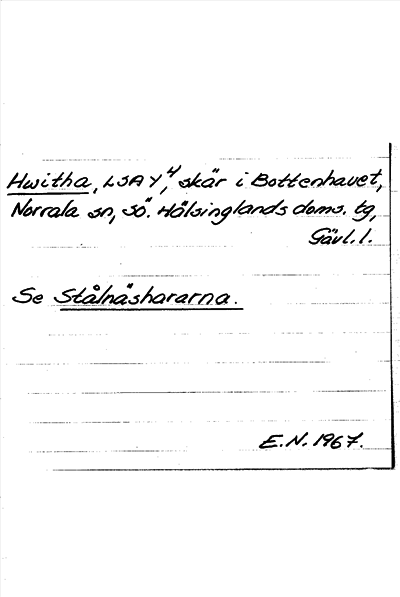 Hwitha, LSA Y⁴, skär i Bottenhavet,
Norrala sn, Sö. Hälsinglands doms. tg,
Gävl. l.
Se Stålnäshararna.
E.N. 1967.